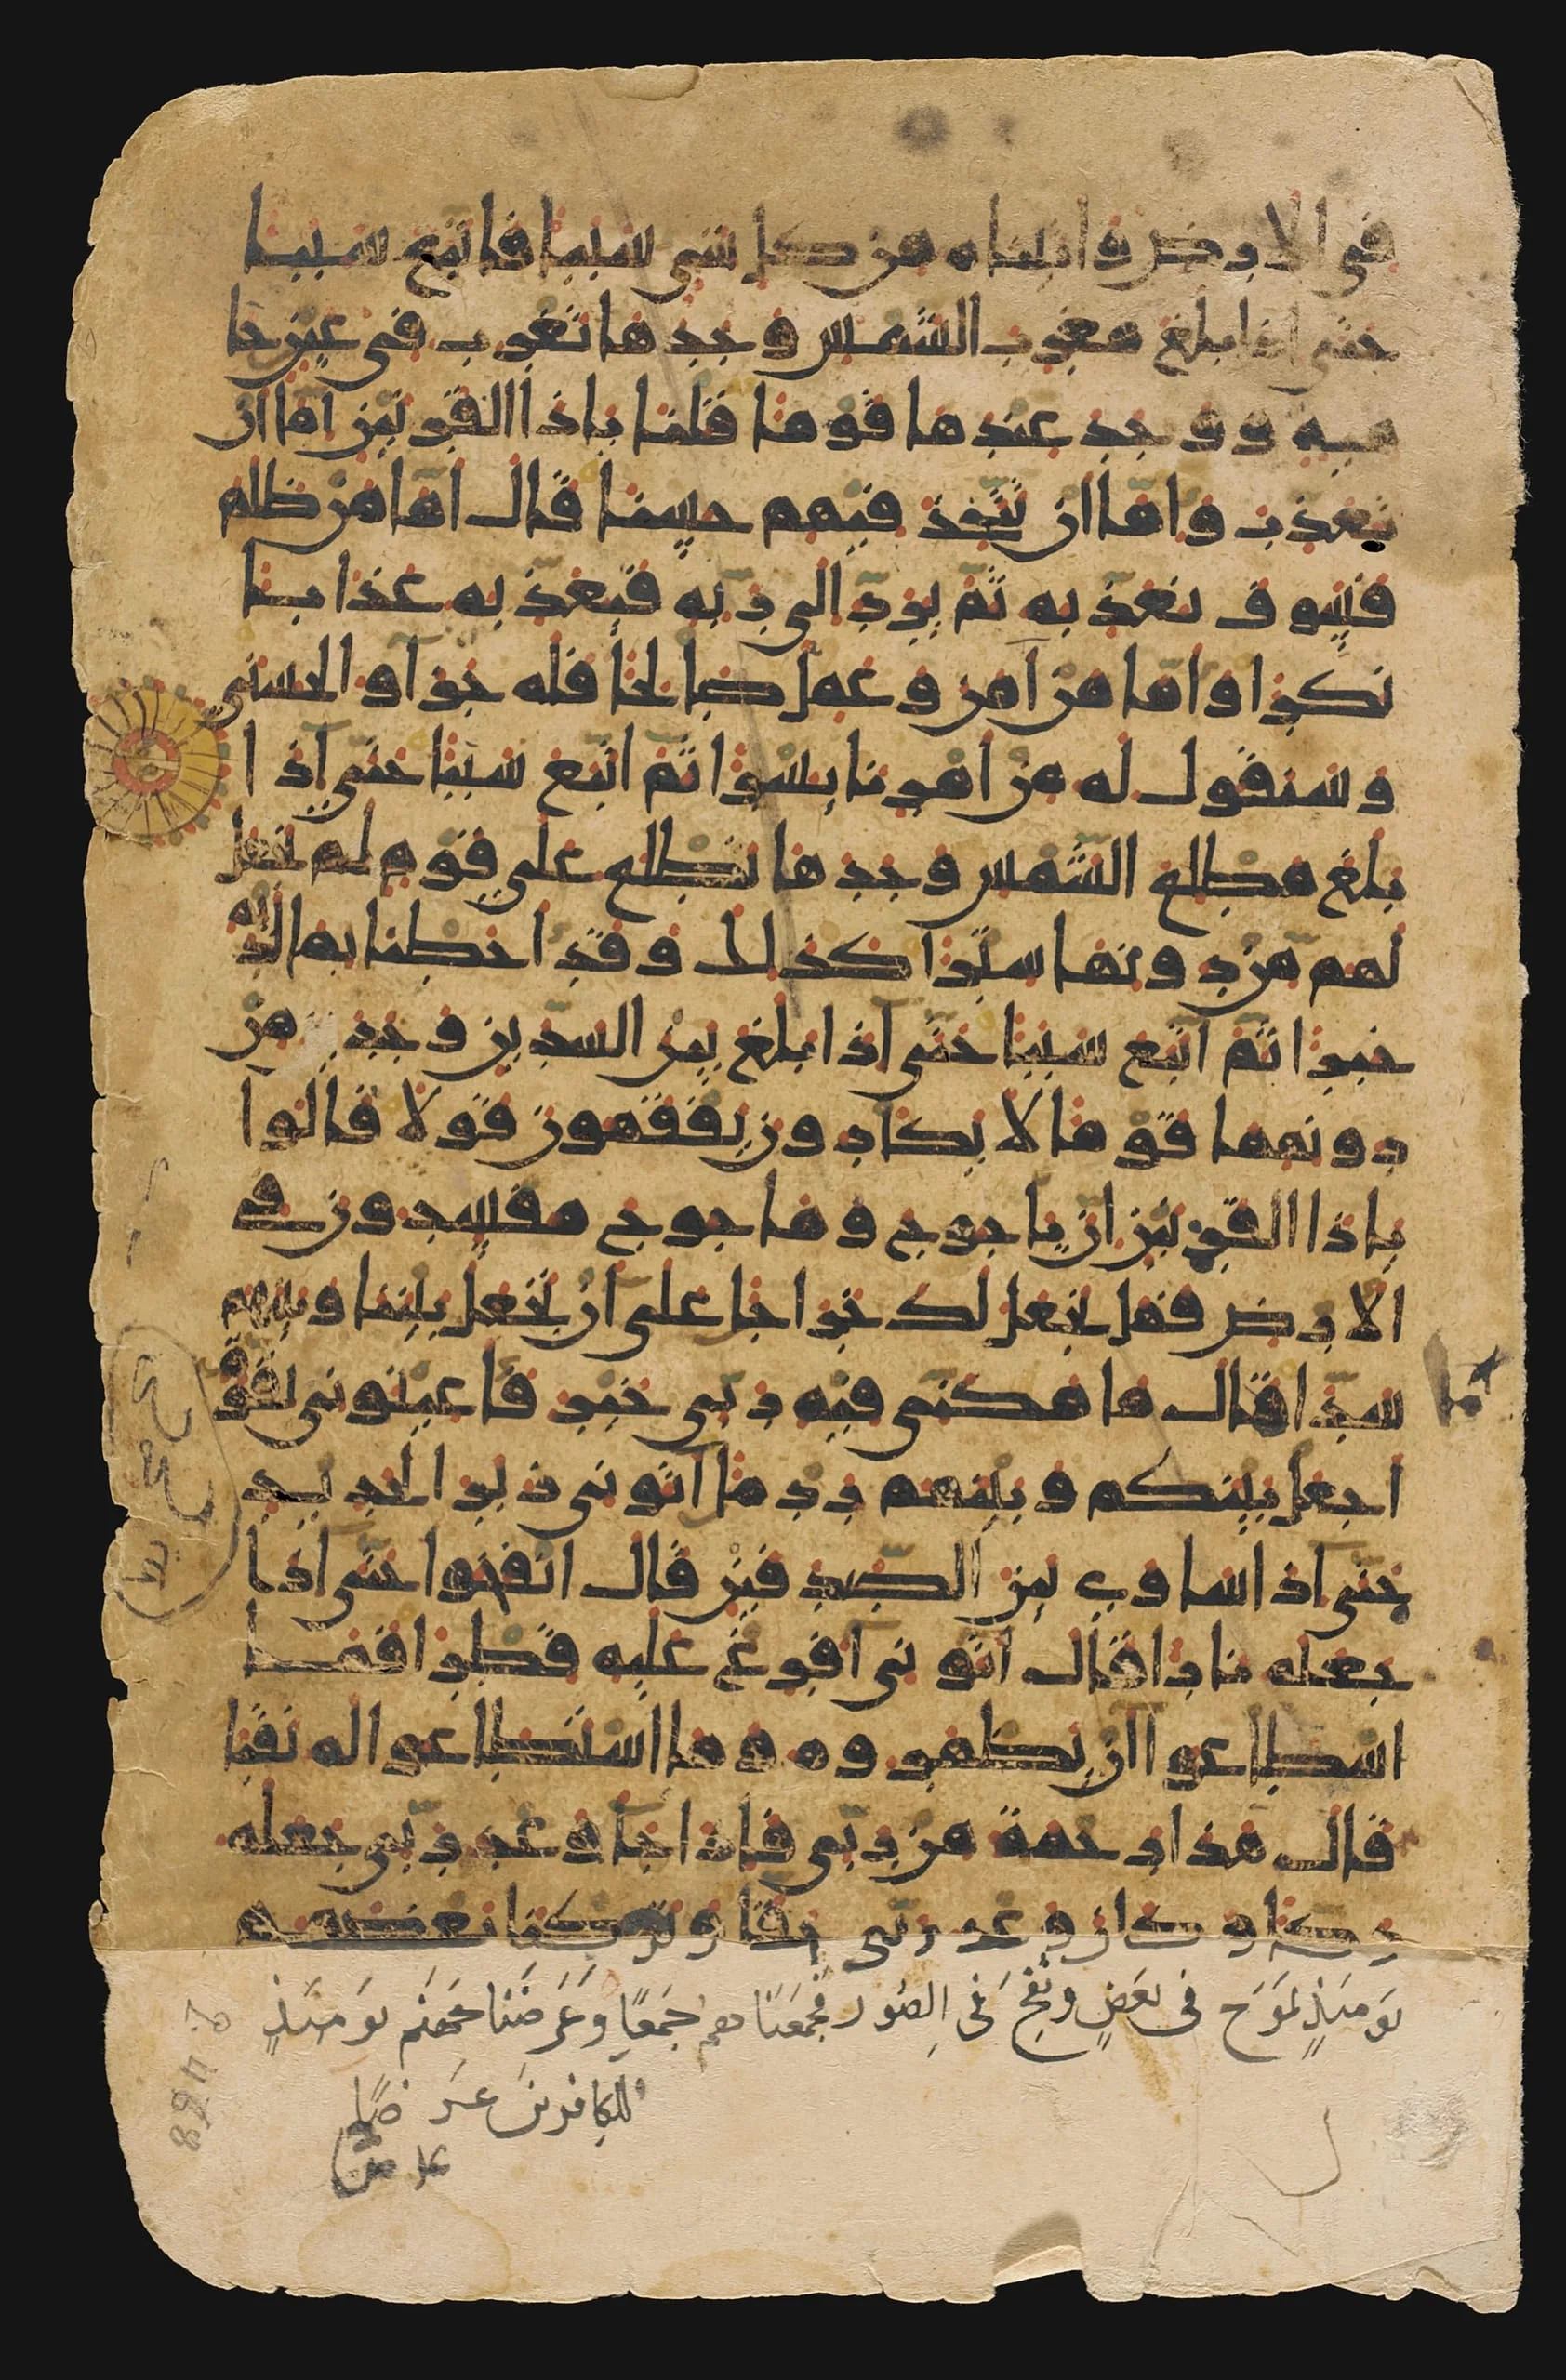 في الارض واتيناه من كل شي سببا فاتبع سببا
حتى اذا بلغ مغرب الشمس وجدها تغرب في عين حا
ميه ووجد عندها قوما قلنا ياذا القرنين اما ان
تعذب واما ان تتخذ فيهم حسنا قال اما من ظلم
فسوف نعذبه ثم يرد الى ربه فيعذبه عذابا
نكرا واما من آمن وعمل صالحا فله جزآو الحسنى
وسنقول له من امرنا يسرا ثم اتبع سببا حتى آذا
بلغ مطلع الشمس وجدها تطلع على قوم لم نجعل
لهم من دونها سترا كذلك وقد احطنا بما لديه
خبرا ثم اتبع سببا حتى آذا بلغ بين السدين وجد من
دونهما قوما لا يكادون يفقهون قولا قالوا
ياذا القرنين ان ياجوج وماجوج مفسدون في
الارض فهل نجعل لك خراجا على آن تجعل بيننا وبينهم
سدا قال ما مكنى فيه ربى خير فاعينونى بقوة
اجعل بينكم وبينهم ردما آتونى زبر الحديد
حتى آذا ساوى بين الصدفين قال انفخوا حتى آذا
جعله نارا قال آتونى آفرغ عليه قطرا فما
اسطاعوا ان يظهروه وما استطاعوا له نقبا
قال هذا رحمة من ربى فاذا جآ وعد ربى جعله
دكا وكان وعد ربى حقا وتركنا بعضهم
يَومَئِذٍ يَمُوج فى بَعَضٍ ونُفِخَ فى الصُور فَجمَعَنَاهم جَمَعًا وَعَرَضَنَا جَهَنَم يَومَئذٍ
للكِافرينَ عَرَضًا